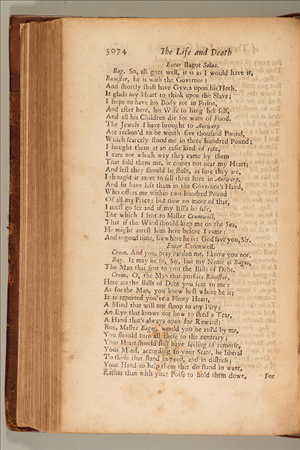 3074 The Life and Death
Enter Bagot Solus.
Bag. So, all goes well, it is as I would have it,
Banister, he is with the Governor:
And shortly shall have Gyves upon his Heels.
It glads my Heart to think upon the Slave;
I hope to have his Body rot in Prison,
And after here, his Wife to hang her self,
And all his Children die for want of Food.
The Jewels I have brought to Antwerp
Are reckon'd to be worth five thousand Pound,
Which scarcely stood me in three hundred Pound;
I bought them at an easie kind of rate,
I care not which way they came by them
That sold them me, it comes not near my Heart;
And lest they should be stoln, as sure they are,
I thought it meet to sell them here in Antwerp,
And so have left them in the Governor's Hand,
Who offers me within two hundred Pound
Of all my Price: but now no more of that,
I must go see and if my Bills be safe,
The which I sent to Master Cromwell,
That if the Wind should keep me on the Sea,
He might arrest him here before I came:
And in good time, see where he is: God save you, Sir.
Enter Cromwell.
Crom. And you, pray pardon me, I know you not.
Bag. It may be so, Sir, but my Name is Bagot,
The Man that sent to you the Bills of Debt.
Crom. O, the Man that pursues Banister,
Here are the Bills of Debt you sent to me:
As for the Man, you know best where he is;
It is reported you've a flinty Heart,
A Mind that will not stoop to any Pity;
An Eye that knows not how to shed a Tear,
A Hand that's always open for Reward:
But, Master Bagot, would you be rul'd by me,
You should turn all these to the contrary;
Your Heart should still have feeling of remorse,
Your Mind, according to your State, be liberal
To those that stand in need, and in distress;
Your Hand to help them that do stand in want,
Rather than with your Poise to hold them down,
For